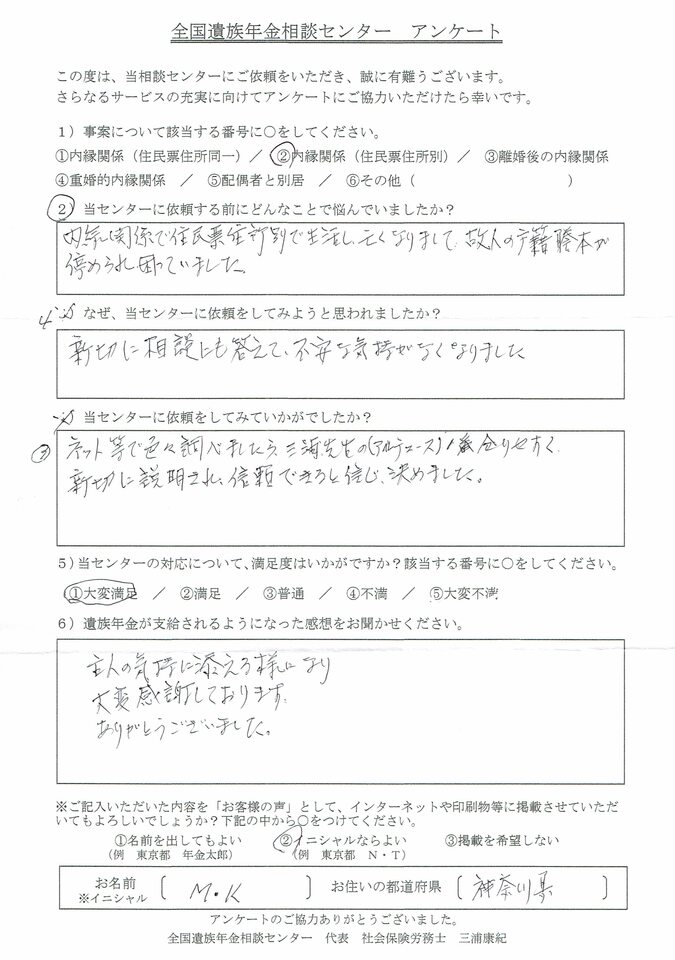 全国遺族年金相談センター　アンケート
この度は、当相談センターにご依頼をいただき、誠に有難うございます。
さらなるサービスの充実に向けてアンケートにご協力いただけたら幸いです。
1）事案について該当する番号に○をしてください。
①内縁関係（住民票住所同一）／　②内縁関係（住民票住所別）／　③離婚後の内縁関係
④重婚的内縁関係　／　⑤配偶者と別居　／　⑥その他（　　　　　　　　　　）
2）当センターに依頼する前にどんなことで悩んでいましたか？
内縁関係で住民票住所別で生活し、亡くなりまして、故人の戸籍謄本が
停められ困っていました。
4 なぜ、当センターに依頼をしてみようと思われましたか？
親切に相談にも答えて、不安な気持がなくなりました
③ 当センターに依頼をしてみていかがでしたか？
ネット等で色々調べましたら、三浦先生の(アルテユース)1番分りやすく
親切に説明され、信頼できると信じ、決めました。
5）当センターの対応について、満足度はいかがですか？該当する番号に○をしてください。
①大変満足　／　②満足　／　③普通　／　④不満　／　⑤大変不満
6）遺族年金が支給されるようになった感想をお聞かせください。
主人の気持に添える様になり
大変感謝しております。
ありがとうございました。
※ご記入いただいた内容を「お客様の声」として、インターネットや印刷物等に掲載させていただ
いてもよろしいでしょうか？下記の中から○をつけてください。
①名前を出してもよい　②イニシャルならよい　③掲載を希望しない
（例　東京都　年金太郎）　（例　東京都　N・T）
お名前
※イニシャル　〔　M・K　〕　お住いの都道府県　〔　神奈川県　〕
アンケートのご協力ありがとうございました。
全国遺族年金相談センター　代表　社会保険労務士　三浦康紀